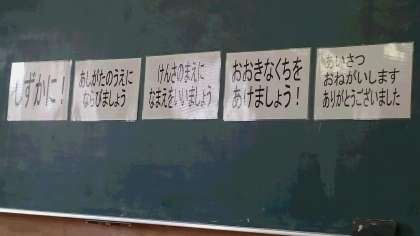 しずかに!
あしがたのうえに
ならびましょう
けんさのまえに
なまえをいいましょう
おおきなくちを
あけましょう!
あいさつ
おねがいします
ありがとうございました